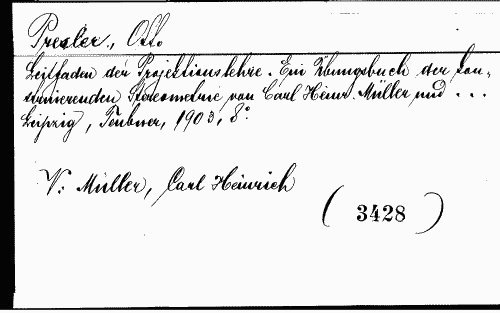 Presler, Otto
Leitfaden der Projektionslehre. Ein Übungsbuch der kon-
struierenden Stereometrie von Carl Heinr. Müller und ...
Leipzig, Teubner, 1903, 8°
V: Müller, Carl Heinrich
(3428)